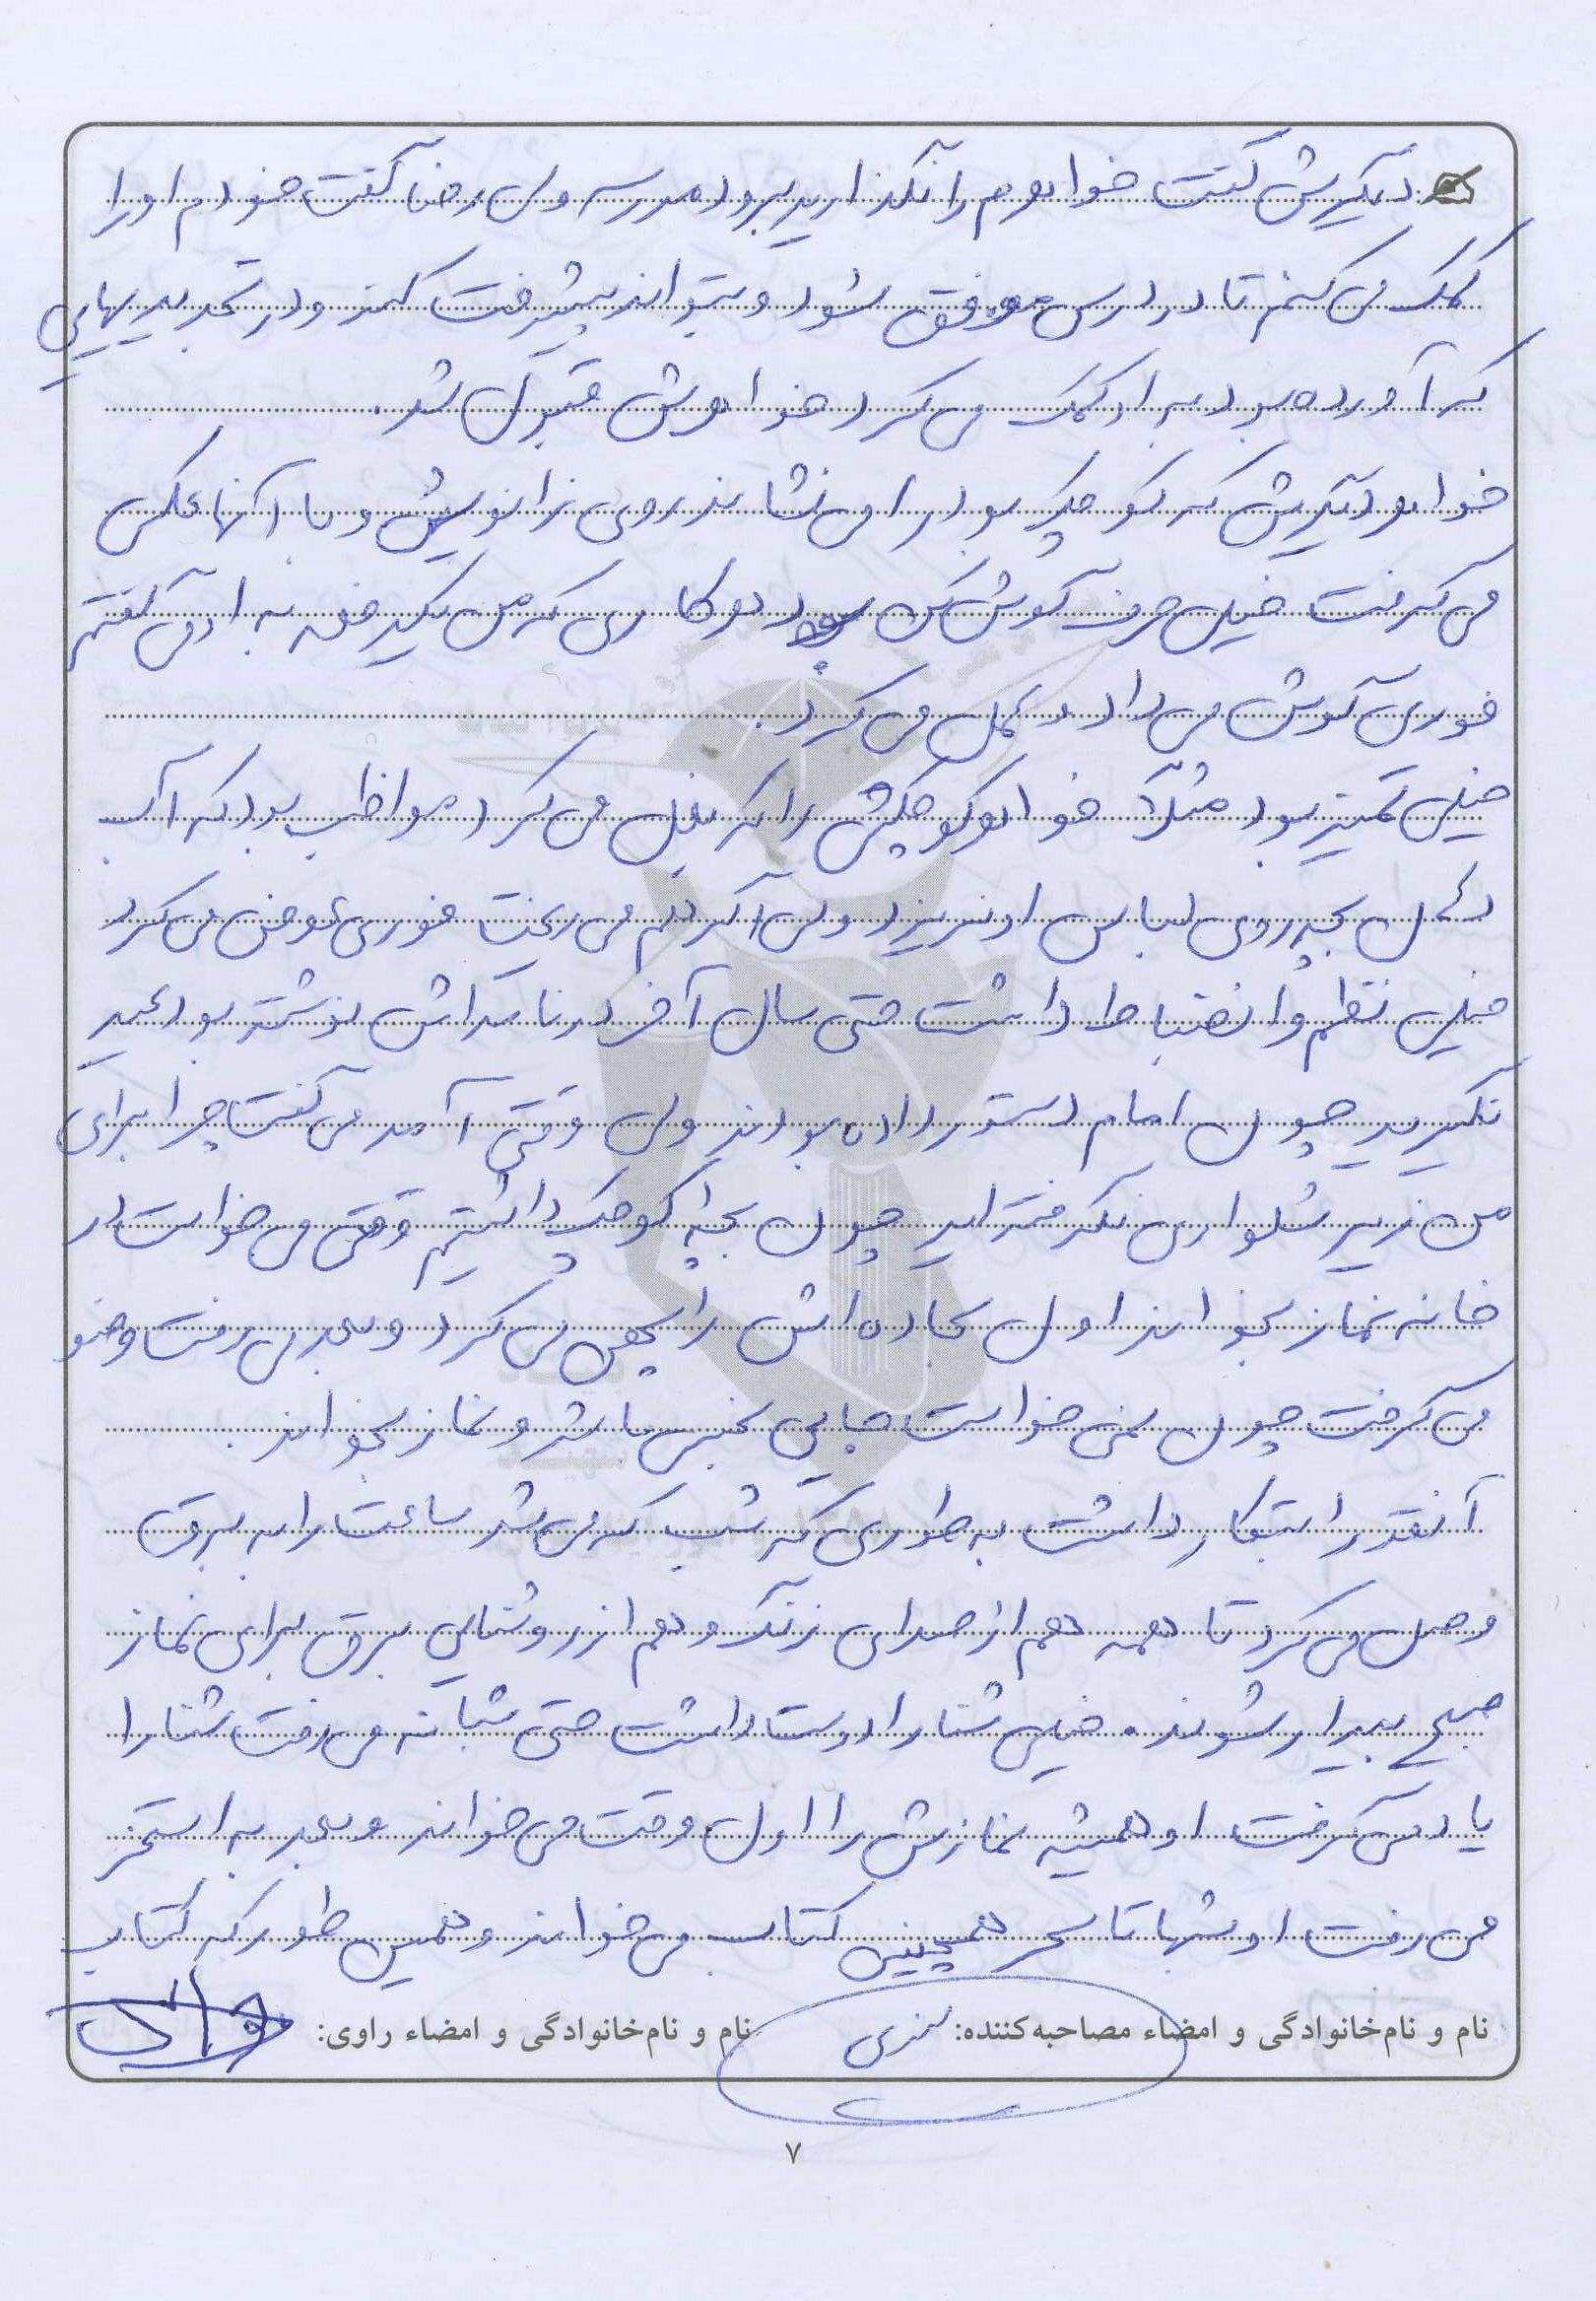 دیگرش گفت خواهرم را نگذارید برود مدرسه ولی رضا گفت خودم او را
کمک می کنم تا در درس موفق شود و بتواند پیشرفت کند و در تجدیدیهایی
که آورده بود به او کمک می کرد خواهرش قبول شد.
خواهر دیگرش که کوچک بود را می نشاند روی زانویش و با آنها عکس
می گرفت خیلی حرف گوش کن بود هر کاری که من یک دفعه به او می گفتم
فوری گوش می داد و عمل می کرد.
خیلی تمیز بود مثلاً خواهر کوچکش را که بغل می کرد مواظب بود که آب
دهان بچه روی لباس او نریزد ولی اگر هم می ریخت فوری عوض می کرد
خیلی نظم و انضباط داشت حتی سال آخر در نامه اش نوشته بود عید
نگیرید چون امام دستور داده بودند ولی وقتی آمد می گفت چرا برای
من زیر شلواری نگرفته اید چون بچه کوچک داشتیم وقتی می خواست در
خانه نماز بخواند اول سجاده اش را پهن می کرد و بعد می رفت وضو
می گرفت چون نمی خواست جایی نجس باشد و نماز بخواند.
آنقدر ابتکار داشت به طوری که شب که می شد ساعت را به برق
وصل می کرد تا همه هم از صدای زنگ و هم از روشنایی برق برای نماز
صبح بیدار شوند. خیلی شنا را دوست داشت حتی شبانه می رفت شنا را
یاد می گرفت او همیشه نمازش را اول وقت می خواند و بعد به استخر
می رفت او شبها تا سحر همچنین کتاب می خواند و همین طور که کتاب
نام و نام‌خانوادگی و امضاء مصاحبه‌کننده:
نام و نام‌خانوادگی و امضاء راوی:
۷